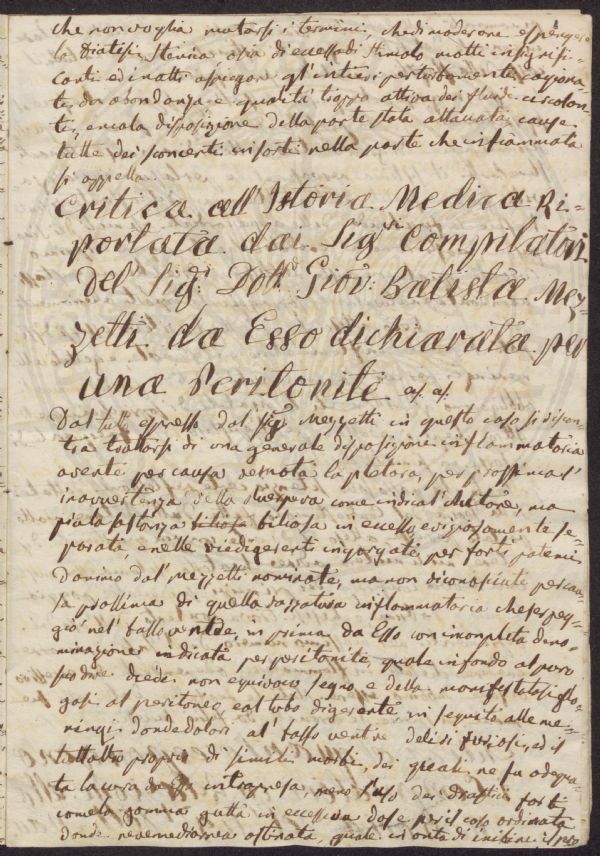 che non voglia mutarsi i termini, che di moderare e spengere
la Diatesi Stenica ossia di eccesso di stimolo motti insignifi-
canti ed inatti a spiegar gl'intieri perturbamenti cagiona-
ti, da abondanza e qualità troppo attiva dei fluidi circolan-
ti, e mala disposizione della parte stata attaccata, cause
tutte dei sconcerti insorti nella parte che infiammata
si appella
Critica all'Istoria Medica Ri-
portata dai Sigri Compilatori
Del Sigr Dottr Giov: Batista Mez-
zetti da Esso dichiarata per
una Peritonite
Dal tutto espresso dal Sigr Mezzetti in questo caso si discon-
tra trattarsi di una generale disposizione inflammatoria
avente per causa remota la pletora, per prossima l'
della come indica l'Autore, ma
più la sostanza biliosa biliosa in eccesso, e vigorosamente se-
parata, e nelle vie digerenti ingorgate, per forti patemi
D'animo dal Mezzetti nominate, ma non riconosciute per cau-
sa prossima di quella inflammatoria che serpeg-
giò nel basso ventre, in prima da Esso con incompleta deno-
minazione indicata per peritonite, quale in fondo al puro
diede non equivoco segno e della
gosi al peritoneo, e al tubo digerente, in seguito alle me-
ningi donde dolori al basso ventre deliri furiosi, ed il
tutt'altro proprio di simili morbi, dei quali ne fu adequa-
ta la cura da intrapresa meno l'uso dei drastici forti
come la gomma gutta in eccessiva dose per il caso ordinata
donde ostinata, quale in onta di